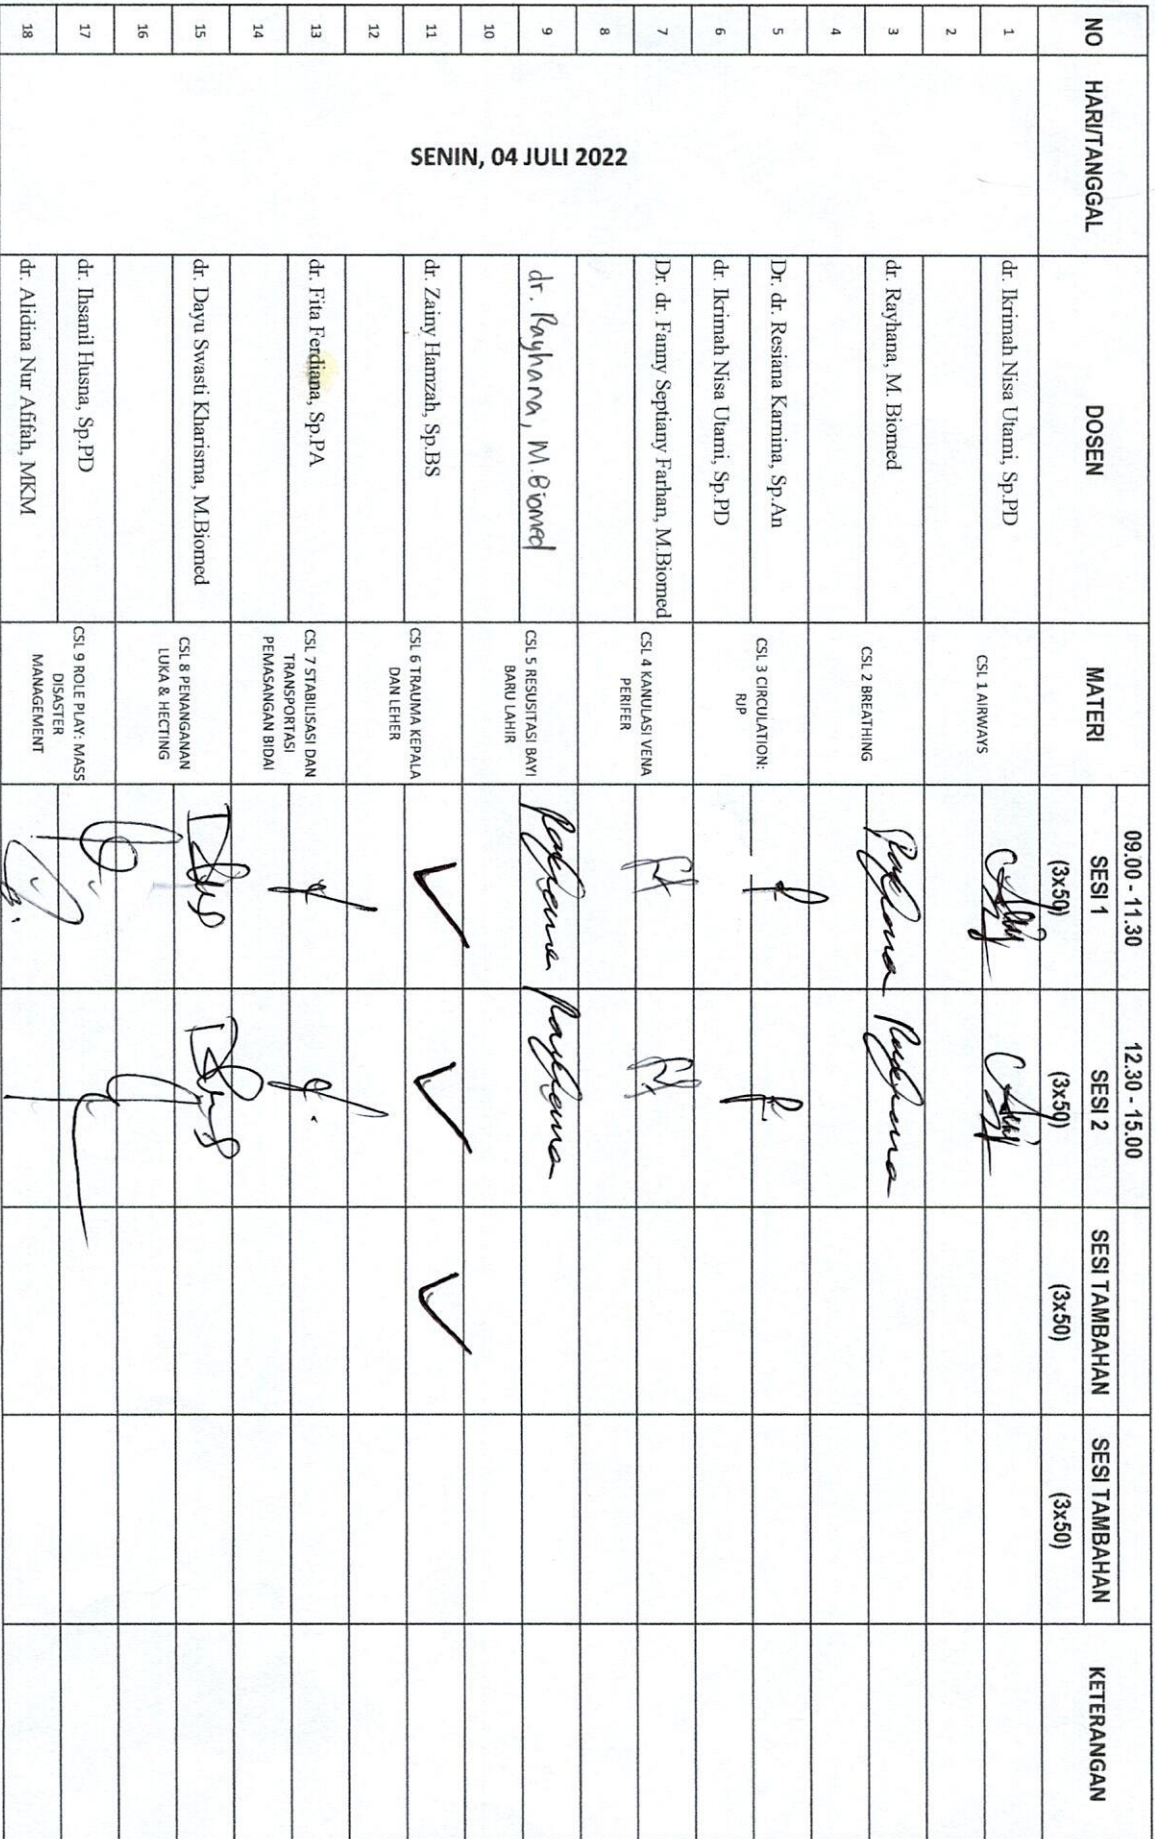 NO HARI/TANGGAL DOSEN MATERI 09.00 - 11.30 12.30 - 15.00 KETERANGAN
SESI 1 SESI 2 SESI TAMBAHAN SESI TAMBAHAN
(3x50) (3x50) (3x50) (3x50)
SENIN, 04 JULI 2022
1 dr. Ikrimah Nisa Utami, Sp.PD CSL 1 AIRWAYS
2
3 dr. Rayhana, M. Biomed CSL 2 BREATHING Rayhana Rayhana
4
5 Dr. dr. Resiana Karnina, Sp.An CSL 3 CIRCULATION:
RJP
6 dr. Ikrimah Nisa Utami, Sp.PD
7 Dr. dr. Fanny Septiany Farhan, M.Biomed CSL 4 KANULASI VENA
PERIFER
8
9 dr. Rayhana, M.Biomed CSL 5 RESUSITASI BAYI
BARU LAHIR Rayhana Rayhana
10
11 dr. Zainy Hamzah, Sp.BS CSL 6 TRAUMA KEPALA
DAN LEHER
12
13 dr. Fita Ferdiana, Sp.PA CSL 7 STABILISASI DAN
TRANSPORTASI
PEMASANGAN BIDAI
14
15 dr. Dayu Swasti Kharisma, M.Biomed CSL 8 PENANGANAN
LUKA & HECTING
16
17 dr. Ihsanil Husna, Sp.PD CSL 9 ROLE PLAY: MASS
DISASTER
MANAGEMENT
18 dr. Alidina Nur Afifah, MKM